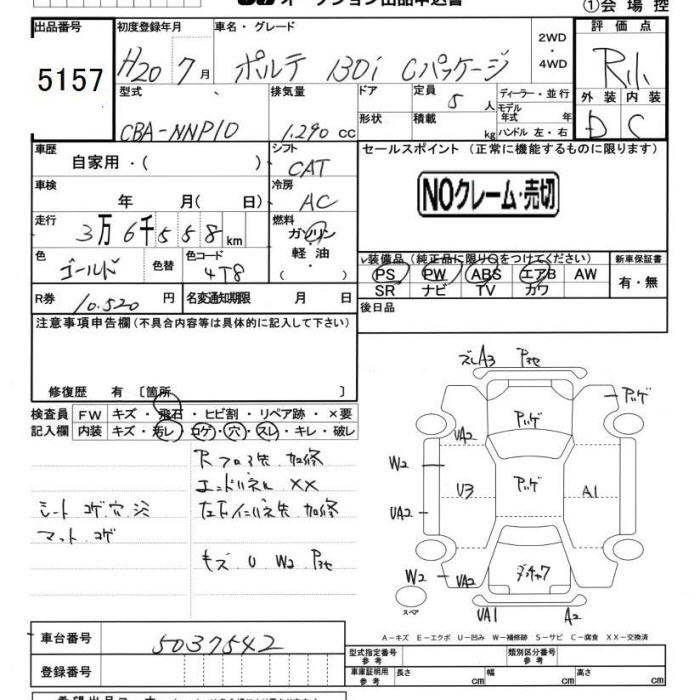 オークション出品申込書
①会場控
出品番号
5157
初度登録年月
H20 7月
車名・グレード
ポルテ 130i Cパッケージ
2WD
・
4WD
評価点
R
外装 内装
D C
型式
CBA-NNP10
排気量
1.290 cc
ドア
形状
定員
5人
積載
kg
ディーラー・並行
モデル
年式 年
ハンドル 左・右
車歴
自家用・( )
シフト
CAT
セールスポイント (正常に機能するものに限ります)
NOクレーム・売切
車検
年 月( 日)
冷房
AC
走行
3万6千558km
燃料
ガソリン
軽油
・
( )
色
ゴールド
色替
色コード
4T8
装備品(純正品に限り○をつけてください)
PS PW ABS エアB AW
SR ナビ TV カワ
新車保証書
有・無
R券
10.520円
名変通知期限 月 日
後日品
注意事項申告欄(不具合内容等は具体的に記入して下さい)
修復歴 有 〔箇所 〕
検査員
記入欄
FW キズ・飛石・ヒビ割・リペア跡・×要
内装 キズ・汚レ・コゲ・穴・スレ・キレ・破レ
エンドパネル XX
シート コゲ 穴
マット コゲ
キズ U W2
A3
UA2
W2
U3
UA2
A1
W2
UA2
UA1
A2
スペア
A－キズ E－エクボ U－凹み W－補修跡 S－サビ C－腐食 XX－交換済
車台番号
5037542
登録番号
型式指定番号
参考
類別区分番号
参考
車体証明用
参考
長さ cm
幅 cm
高さ cm